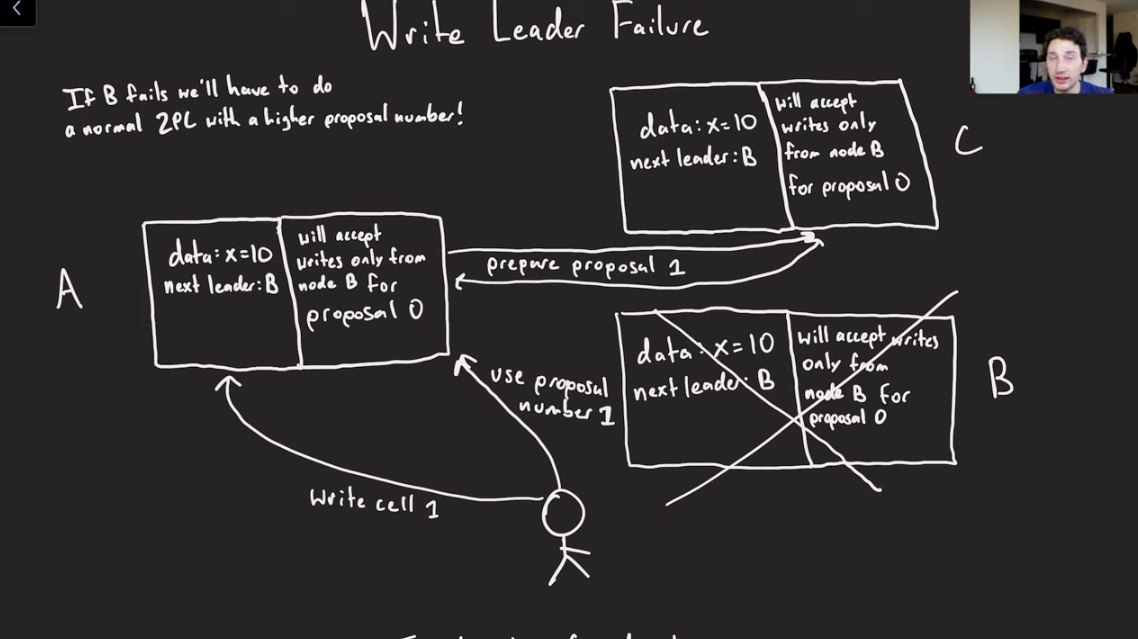 Write Leader Failure
If B fails we'll have to do
a normal 2PC with a higher proposal number!
data: x=10
next leader: B
will accept
writes only
from node B
for proposal 0
C
A
data: x=10
next leader: B
will accept
writes only from
node B for
proposal 0
prepare proposal 1
data: x=10
next leader: B
will accept writes
only from
node B for
proposal 0
B
use proposal
number 1
Write cell 1